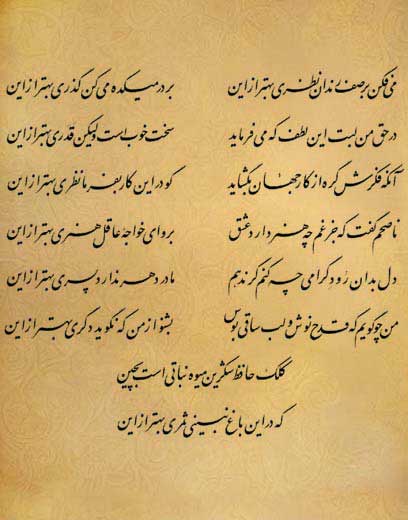 می فکن بر صف رندان نظری بهتر از این بر در میکده می کن گذری بهتر از این
در حق من لبت این لطف که می فرماید سخت خوب است ولیکن قدری بهتر از این
آنکه فکرش گره از کار جهان بگشاید گو در این کار بفرما نظری بهتر از این
ناصحم گفت که جز غم چه هنر دارد عشق برو ای خواجهٔ عاقل هنری بهتر از این
دل بدان رود گرامی چه کنم گر ندهم مادر دهر ندارد پسری بهتر از این
من چو گویم که قدح نوش و لب ساقی بوس بشنو از من که نگوید دگری بهتر از این
کلک حافظ شکرین میوه نباتی است بچین
که در این باغ نبینی ثمری بهتر از این